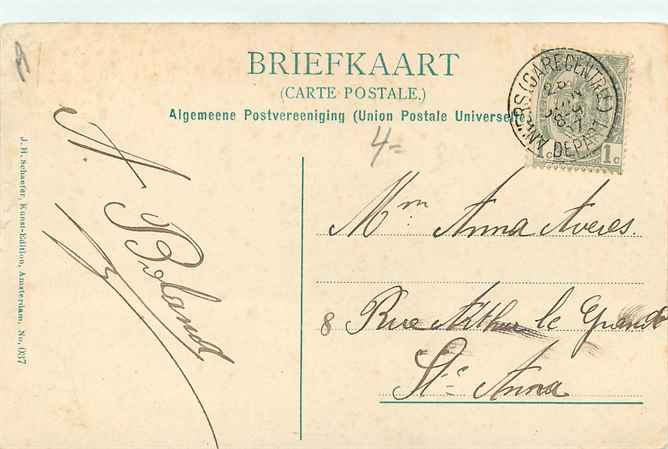 BRIEFKAART
(CARTE POSTALE.)
Algemeene Postvereeniging (Union Postale Universelle)
ANVERS (GARE CENTRALE)
DEPART
1c 1c
4=
A. Boland
Mme Anna Averes.
8 Rue Arthur le Grand
Ste Anna
J. H. Schaefer, Kunst-Edition, Amsterdam, No. 037